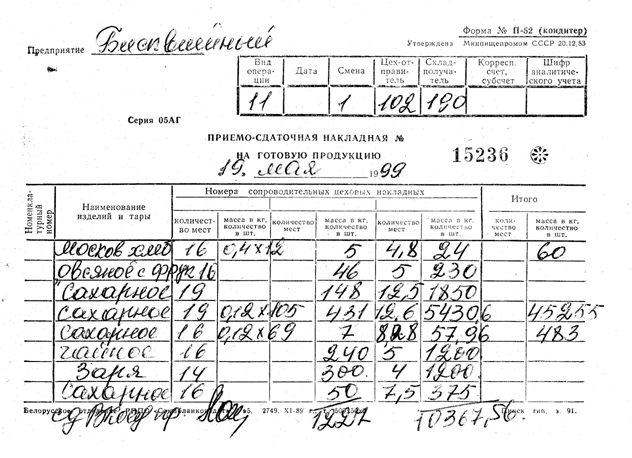 Форма № П-52 (кондитер)
Утверждена Минпищепромом СССР 20.12.83
Предприятие Бисквитный
Вид операции Дата Смена Цех-отправитель Склад-получатель Корресп. счет, субсчет Шифр аналитического учета
11 1 102 190
Серия 05АГ
ПРИЕМО-СДАТОЧНАЯ НАКЛАДНАЯ №
НА ГОТОВУЮ ПРОДУКЦИЮ 15236
19. мая 1999
Номенклатурный номер Наименование изделий и тары Номера сопроводительных цеховых накладных Итого
количество мест масса в кг, количество в шт. количество мест масса в кг, количество в шт. количество мест масса в кг, количество в шт. количество мест масса в кг, количество в шт.
Москов хлеб 16 0,4х12 5 4,8 24 60
овсяное с фрук 16 46 5 230
"Сахарное 19 148 12,5 1850
Сахарное 19 0,12х105 431 12,6 54306 45255
Сахарное 16 0,12х69 7 828 57,96 483
чайное 16 240 5 1200
Заря 14 300. 4 1200.
Сахарное 16 50 7,5 375
Белорусское 2749, XI-89 тип. з. 91.
1227 10367,56